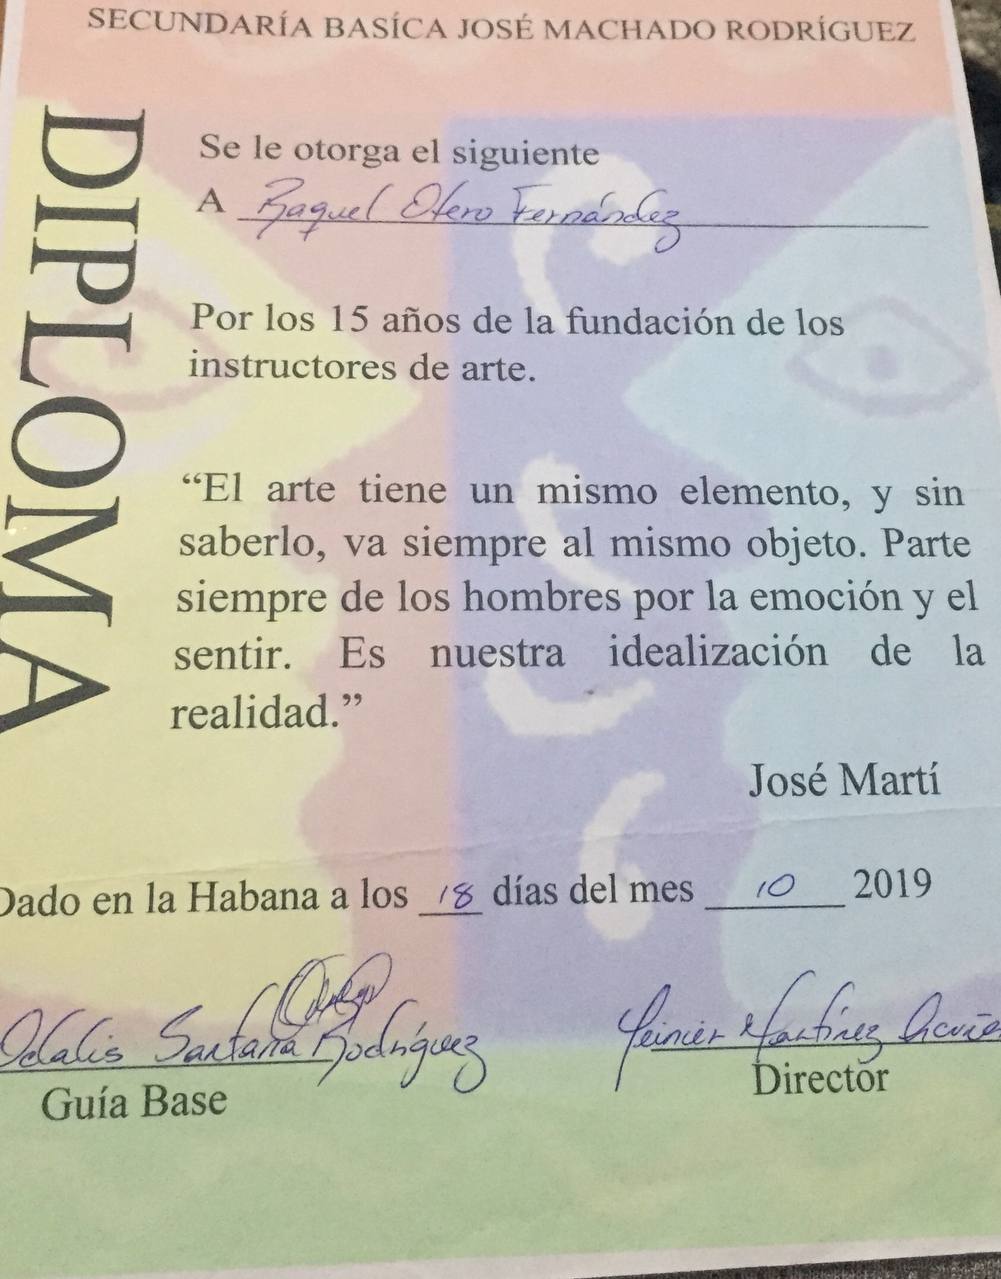 SECUNDARÍA BASÍCA JOSÉ MACHADO RODRÍGUEZ
DIPLOMA
Se le otorga el siguiente
A Raquel Otero Fernández
Por los 15 años de la fundación de los
instructores de arte.
“El arte tiene un mismo elemento, y sin
saberlo, va siempre al mismo objeto. Parte
siempre de los hombres por la emoción y el
sentir. Es nuestra idealización de la
realidad.”
José Martí
Dado en la Habana a los 18 días del mes 10 2019
Odalis Santana Rodríguez
Yeinier Martínez
Guía Base
Director